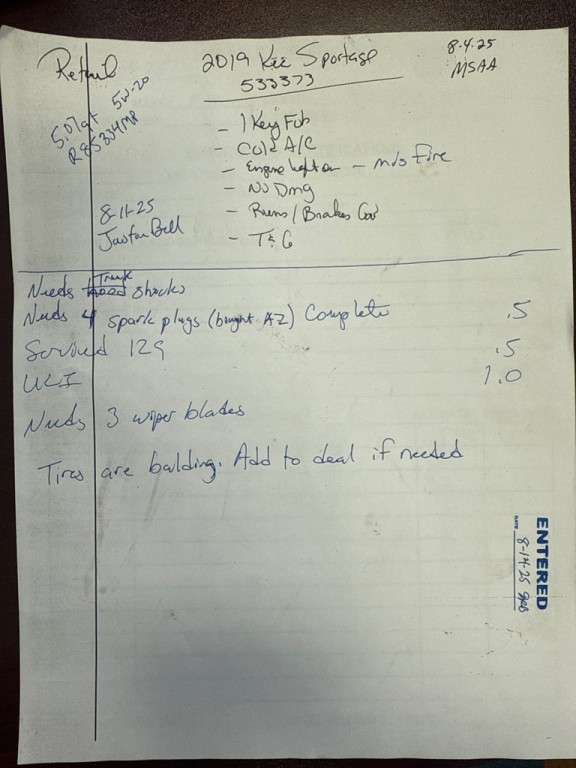 Retail
2019 Kia Sportage
533373
8-4-25
MSAA
5.07qt 5W-20
R85334MP
- 1 Key/Fob
- Cold A/C
- Engine Light on - mis Fire
- No Dmg
- Runs/Brakes Good
- T&G
8-11-25
Needs Trunk shocks
Needs 4 spark plugs (bought AZ) Complete .5
Serviced 129 .5
UCI 1.0
Needs 3 wiper blades
Tires are balding. Add to deal if needed
ENTERED
DATE 8-14-25